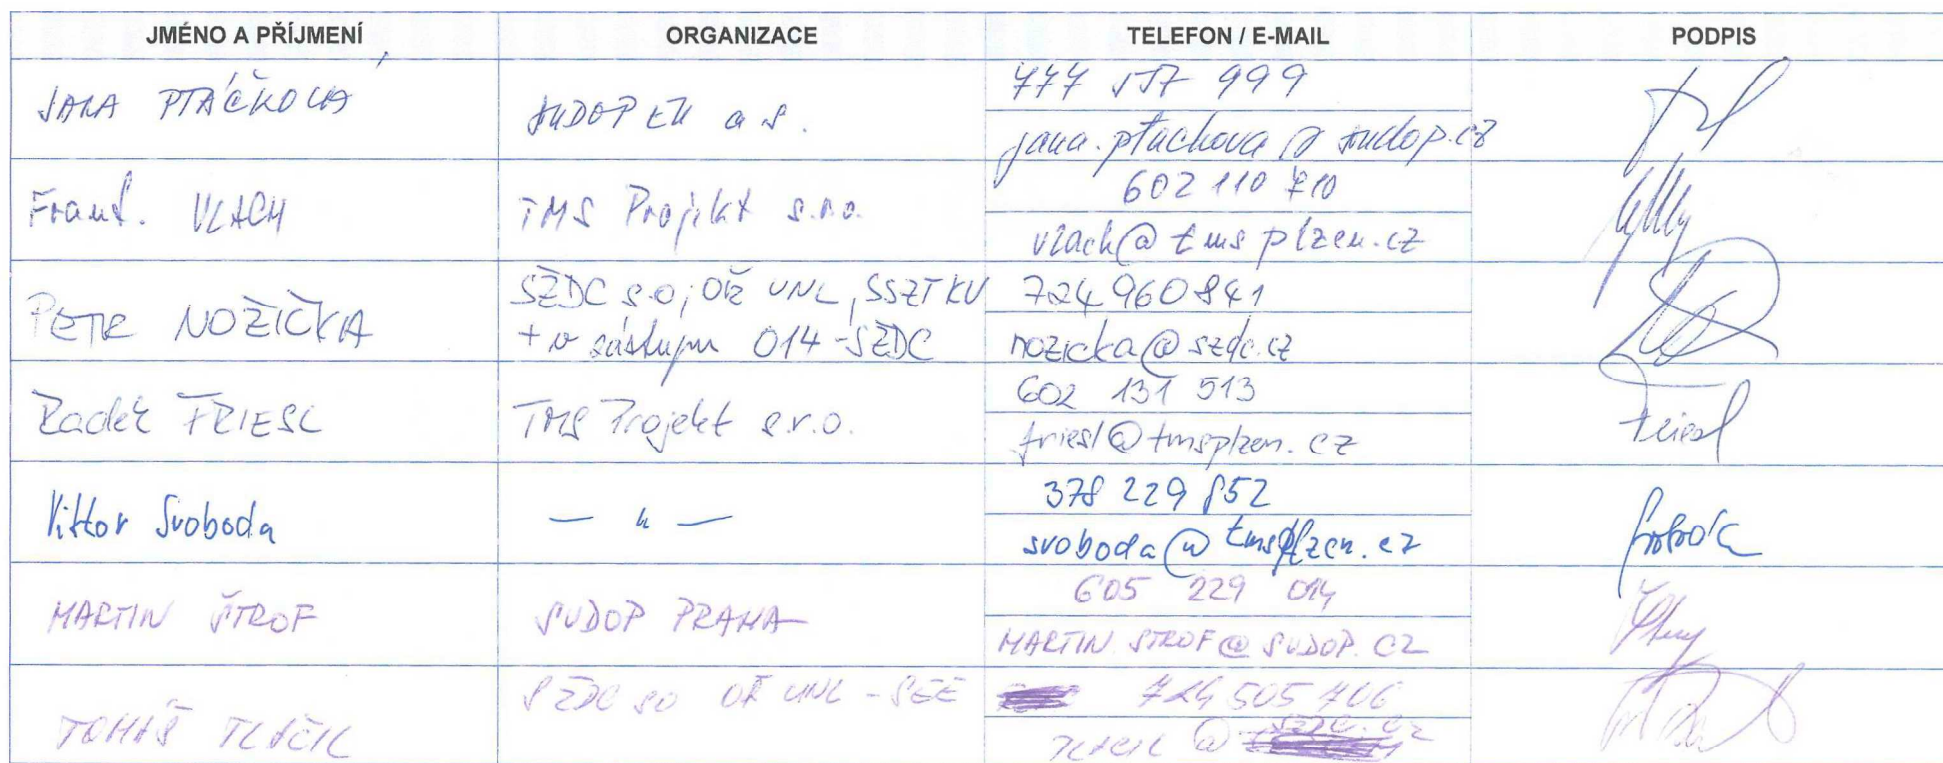 JMÉNO A PŘÍJMENÍ ORGANIZACE TELEFON / E-MAIL PODPIS
JANA PTÁČKOVÁ SUDOP EU a.s. 777 557 999
jana.ptackova@sudop.cz
Frant. VLACH TMS Projekt s.r.o. 602 110 710
vlach@tmsplzen.cz
PETR NOŽIČKA SŽDC s.o, OŘ UNL, SSZT KV 724 960 841
+ v zástupu O14 - SŽDC nozicka@szdc.cz
Radek FRIESL TMS Projekt s.r.o. 602 131 513
friesl@tmsplzen.cz Friesl
Viktor Svoboda — " — 378 229 852
svoboda@tmsplzen.cz
MARTIN ŠTROF SUDOP PRAHA 605 229 014
MARTIN.STROF@SUDOP.CZ
TOMÁŠ TLAČIL SŽDC so OŘ UNL - SEE 724 505 706
TLACIL@SZDC.CZ